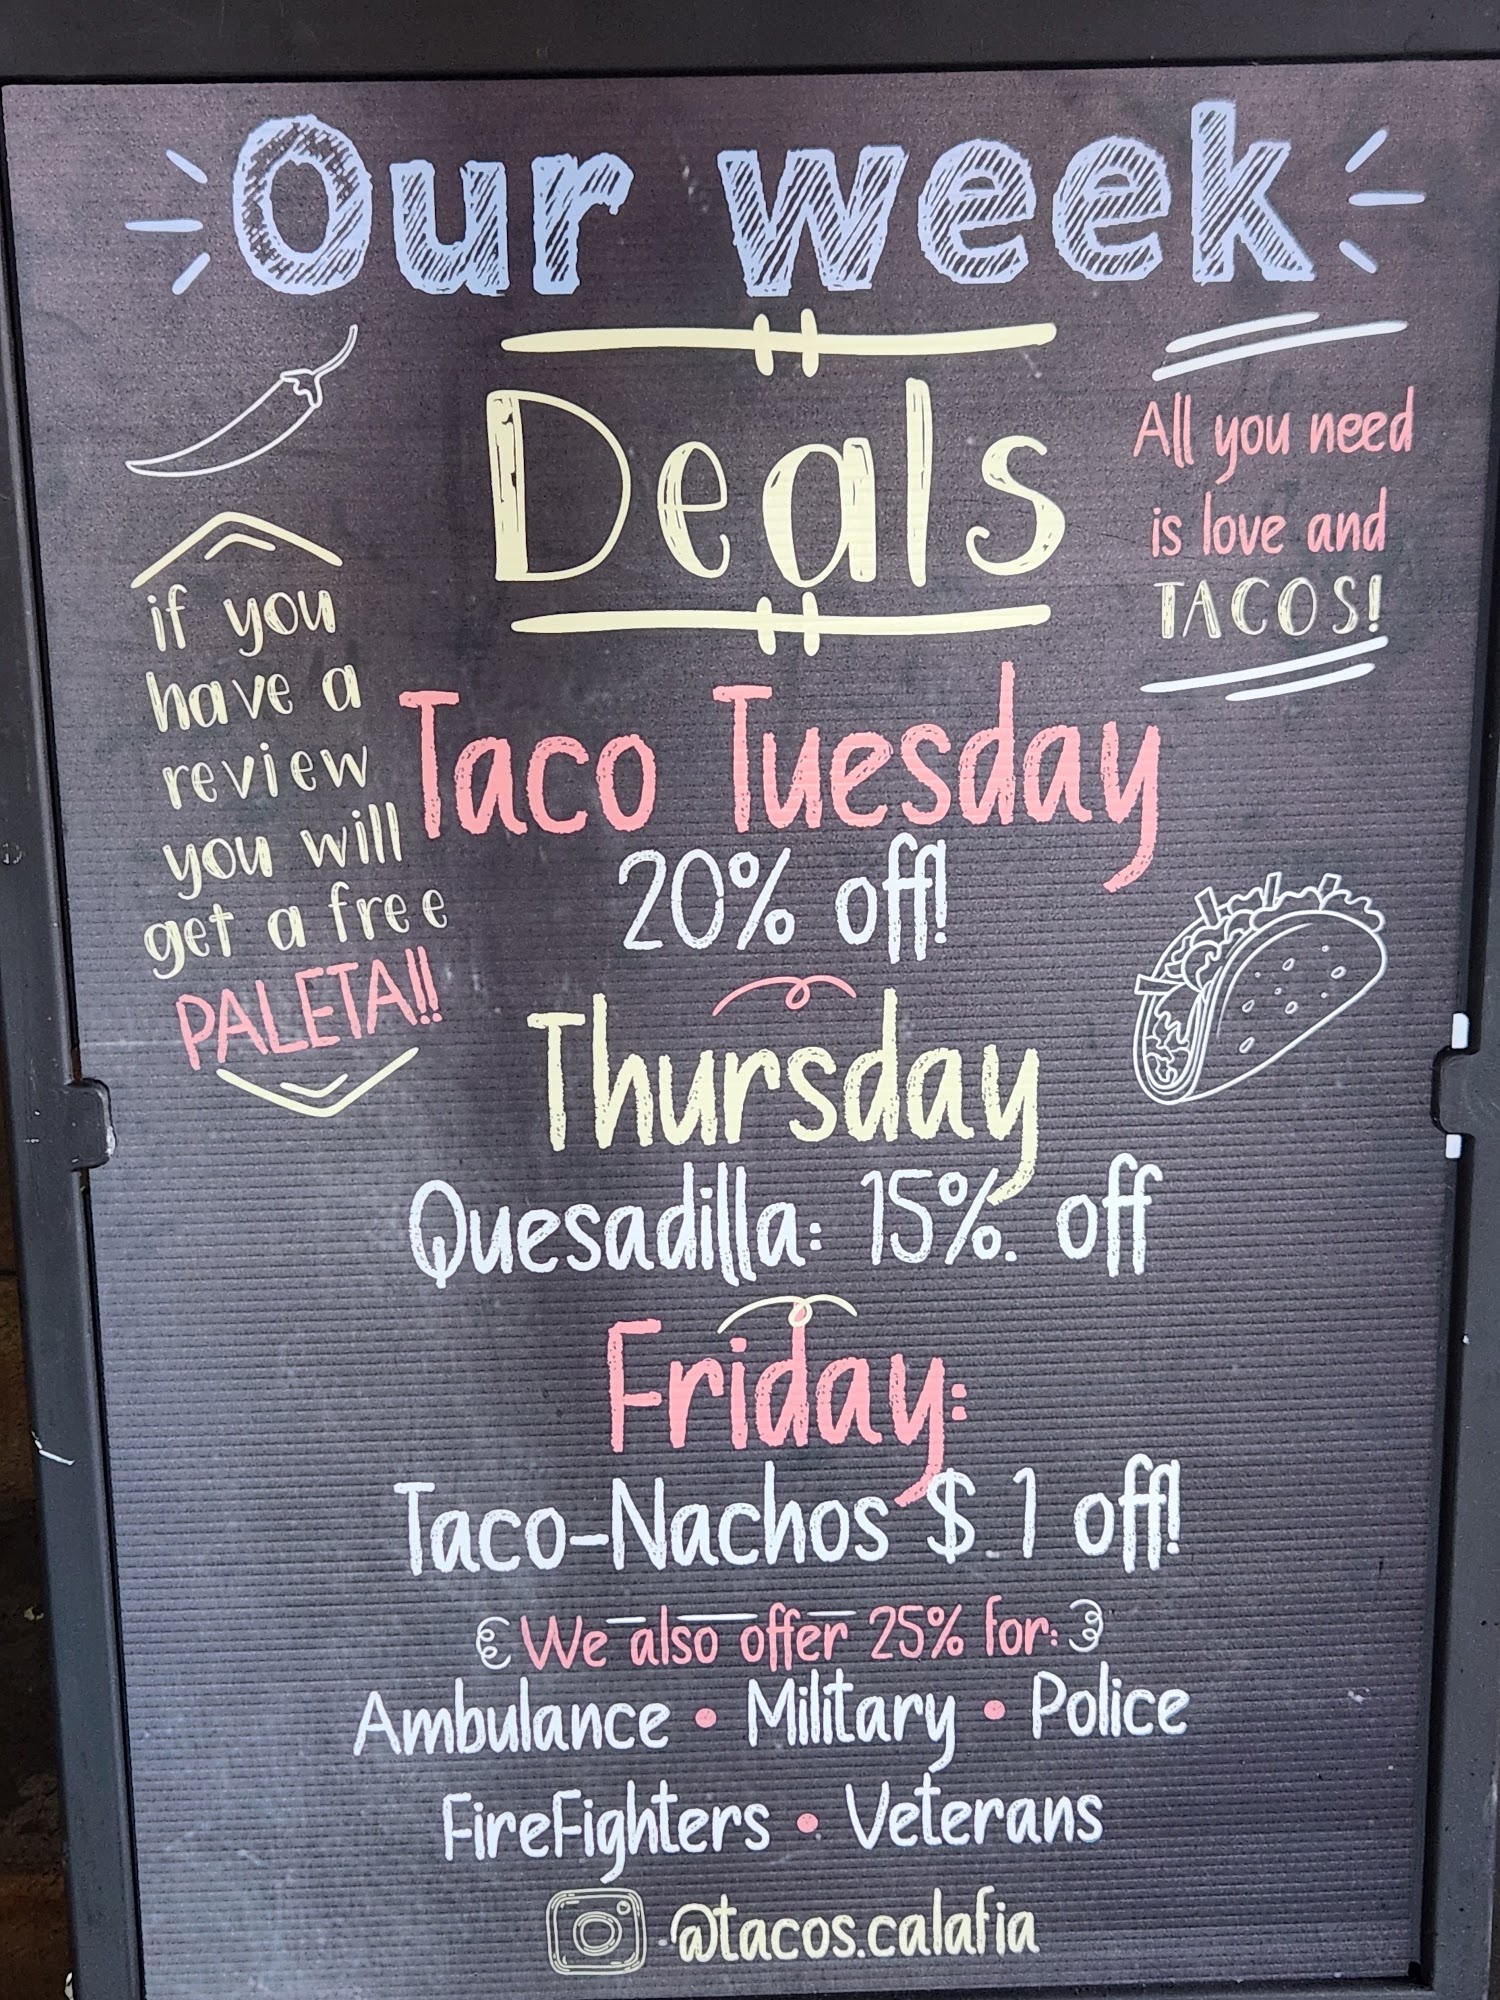 Our week
Deals
All you need
is love and
TACOS!
if you
have a
review
you will
get a free
PALETA!!
Taco Tuesday
20% off!
Thursday
Quesadilla: 15%. off
Friday:
Taco-Nachos $.1 off!
We also offer 25% for:
Ambulance • Military • Police
FireFighters • Veterans
@tacos.calafia